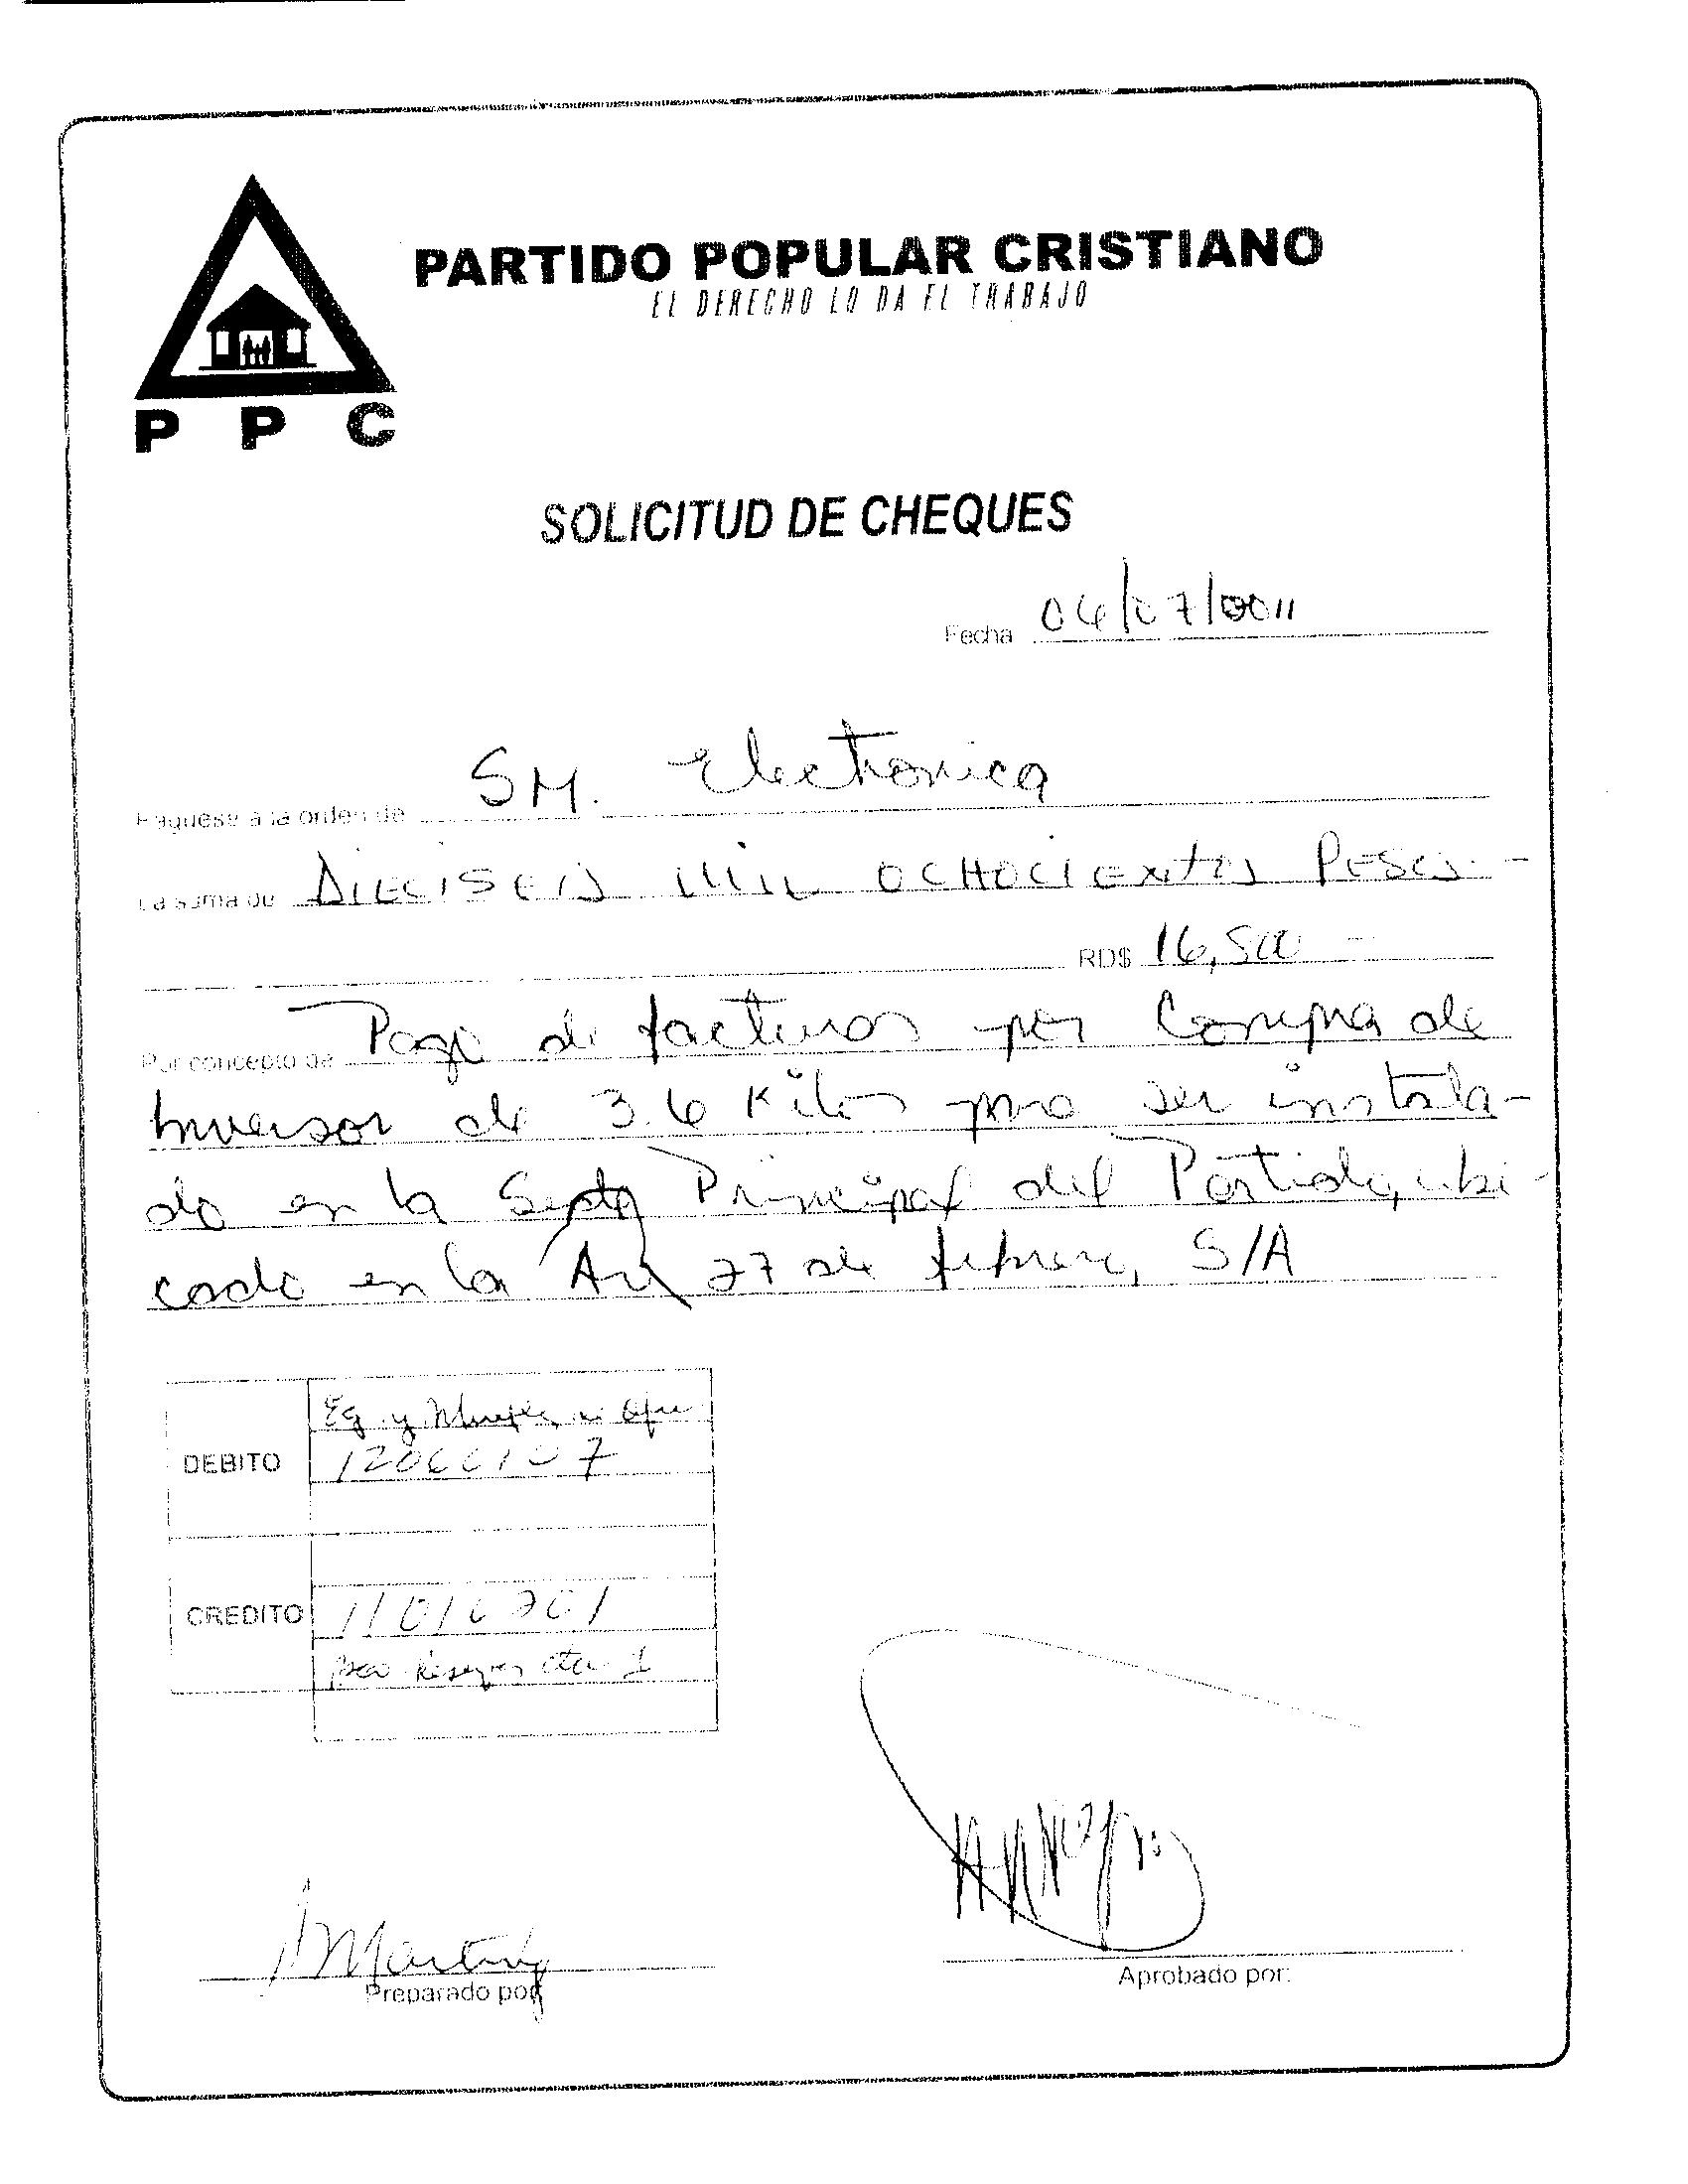 PARTIDO POPULAR CRISTIANO
EL DERECHO LO DA EL TRABAJO
P P C
SOLICITUD DE CHEQUES
Fecha 04/07/2011
Páguese a la orden de SM. Electronica
La suma de DIECISEIS MIL OCHOCIENTOS PESOS.-
RD$ 16,800 -
Por concepto de Pago de facturas por Compra de
Inversor de 3.6 Kilos para ser instala-
do en la Sede Principal del Partido, ubi-
cado en la Av 27 de febrero, S/A
DEBITO
Eq y Muebles
CREDITO
Reservas cta 1
Martinez
Preparado por:
Aprobado por: